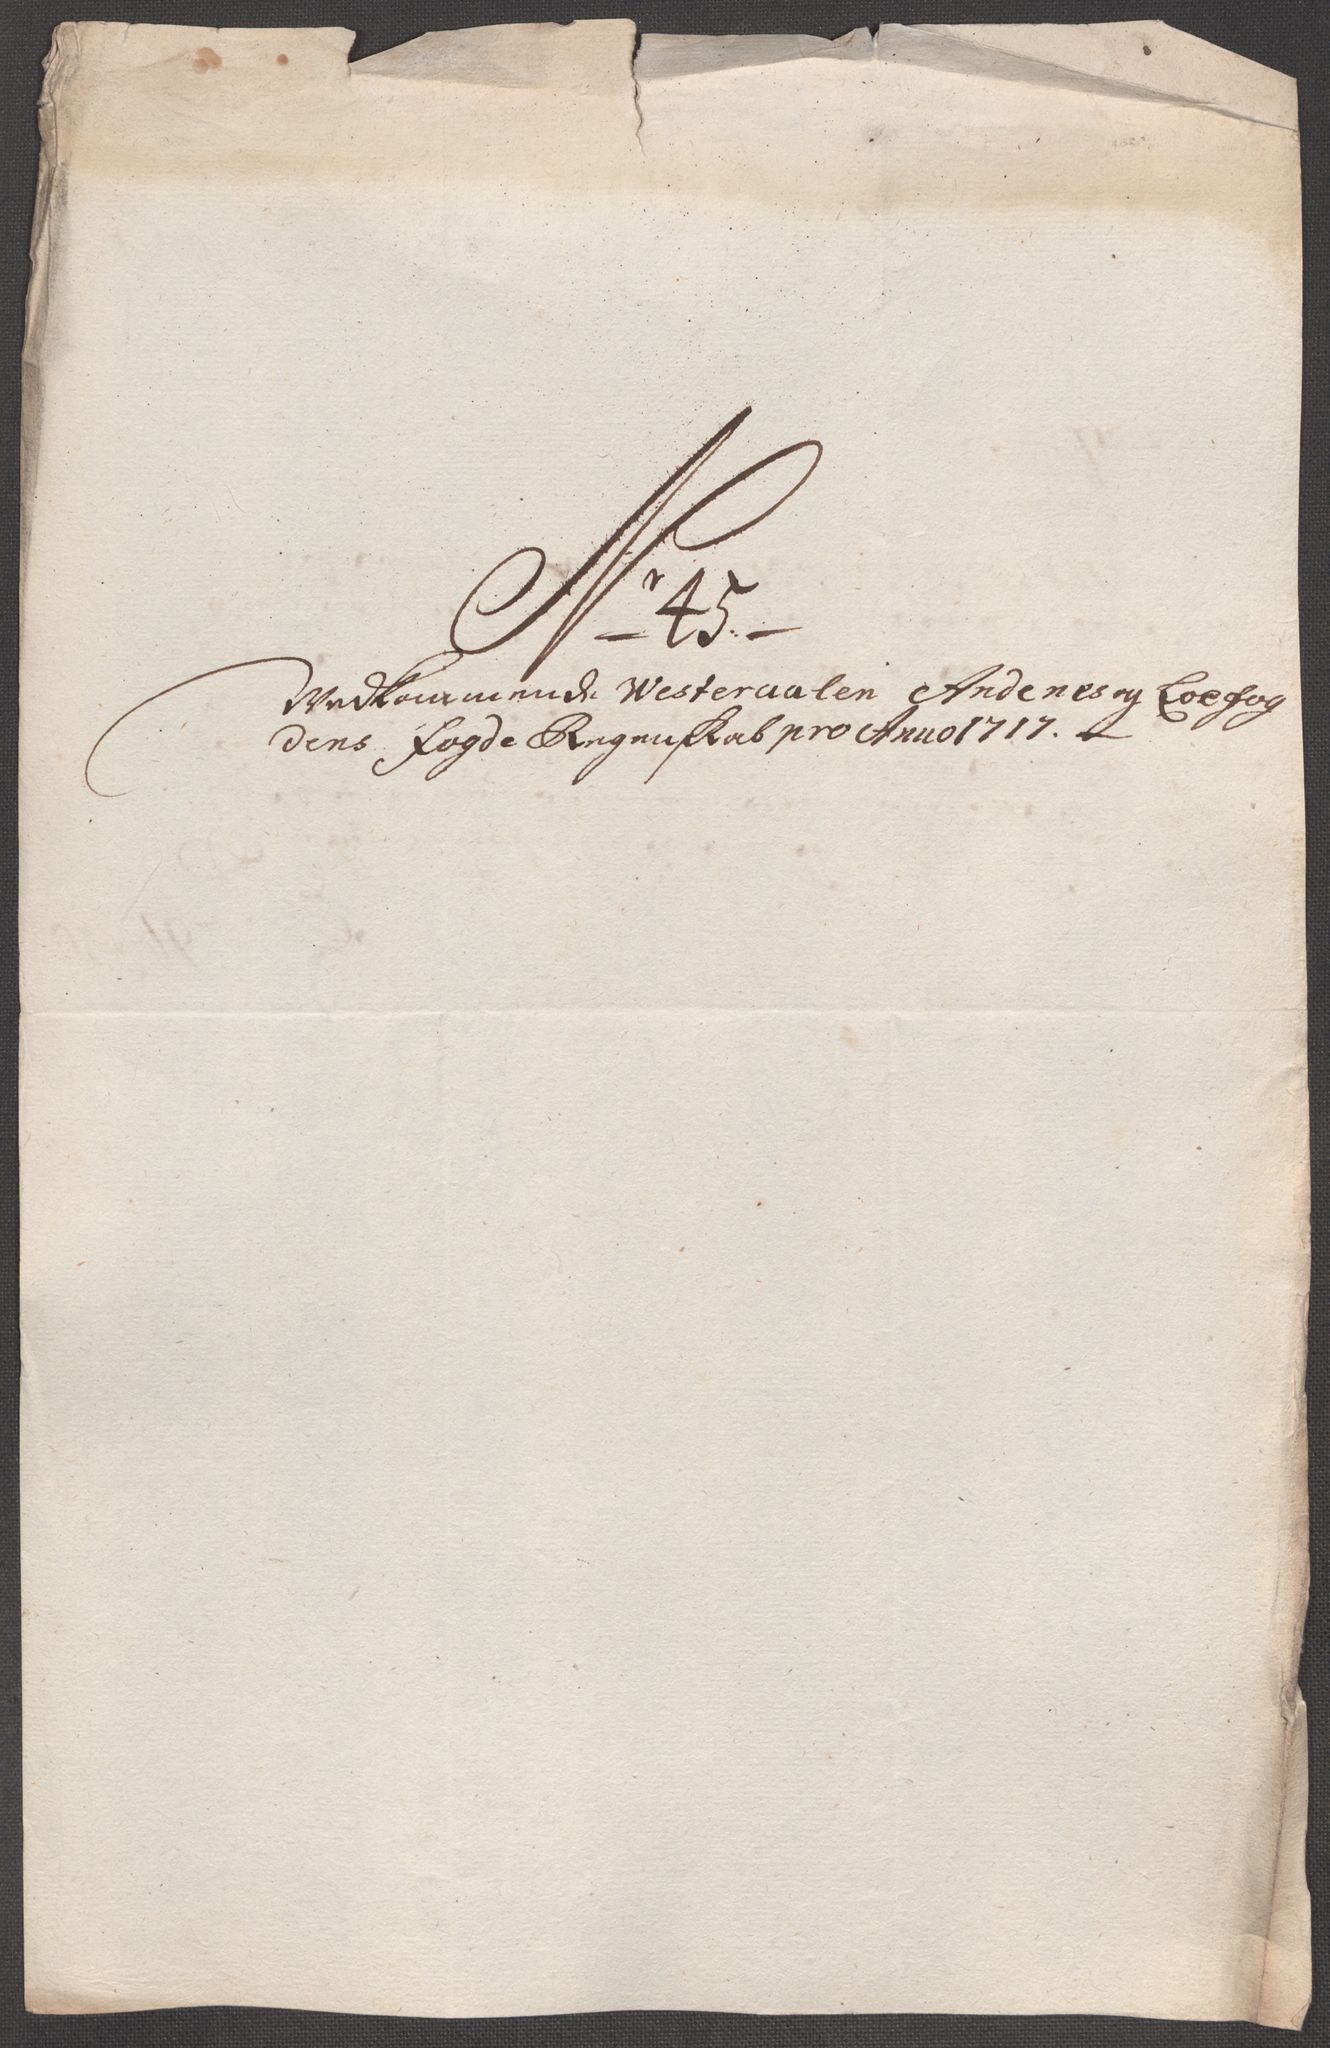 Nr 45.
Vedkommende Westeraalen Andenes og Loffog
dens fogde Regnskab pro Anno 1717.